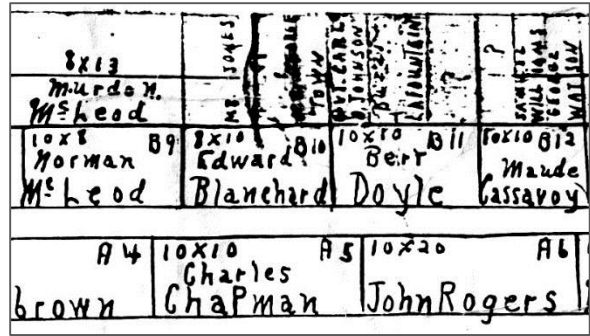 8X13
Murdo N.
McLeod
MR. JONES
TOWN
PVT. CARL
D. JOHNSON
BUZZY
LAFOUNTAIN
?
?
SAMUEL
WILLIAMS
GEORGE
WATSON
10X8 B9
Norman
McLeod
8X10 B10
Edward
Blanchard
10X10 B11
Bert
Doyle
10X10 B12
Maude
Cassavoy
A4
brown
10X10 A5
Charles
ChaPman
10X20 A6
John Rogers